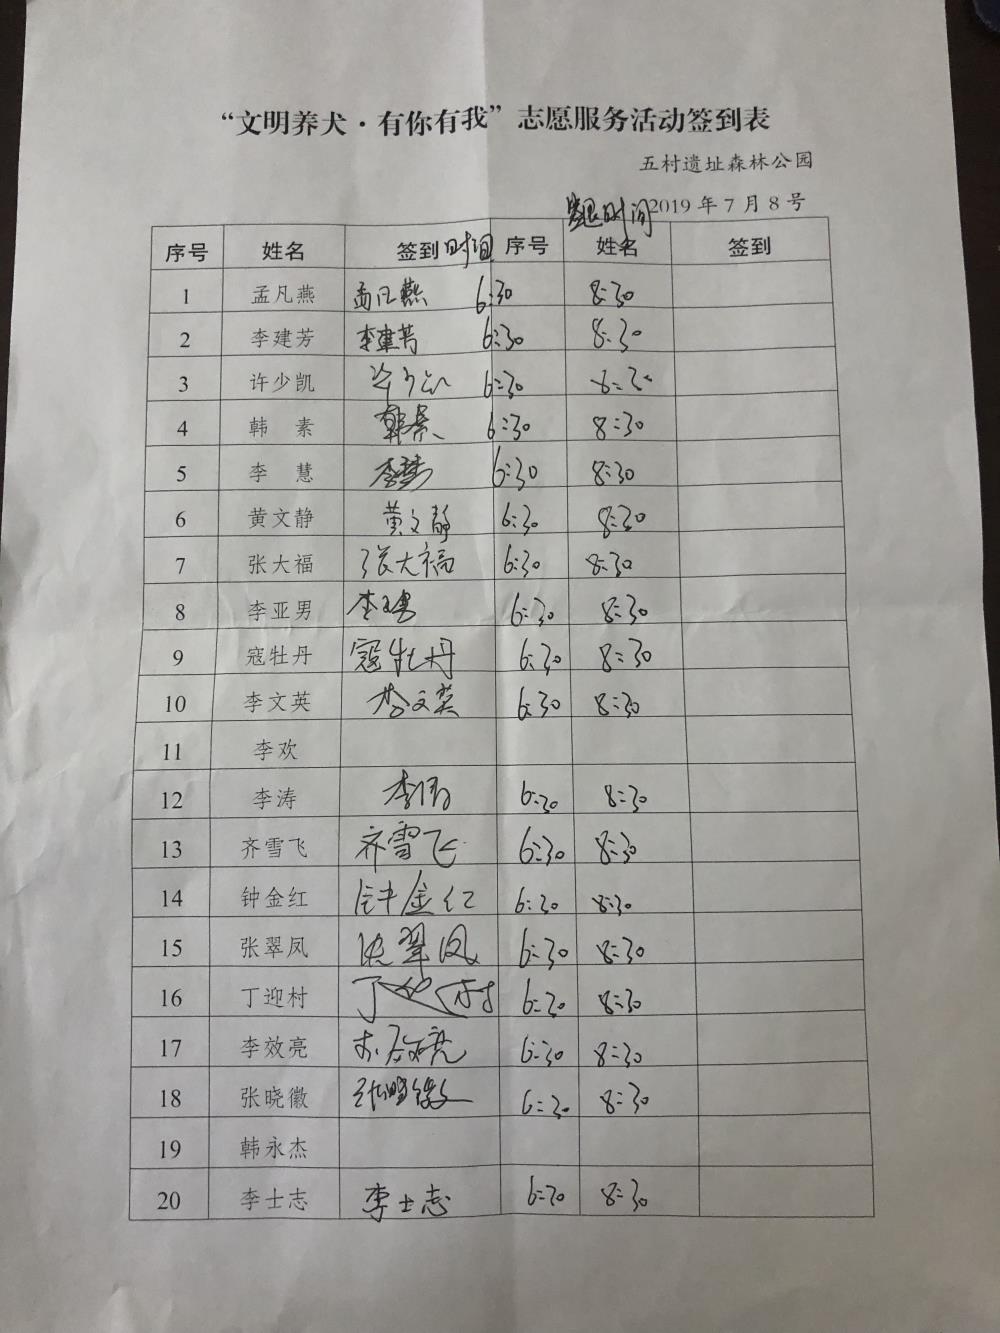 “文明养犬·有你有我”志愿服务活动签到表
五村遗址森林公园
2019年7月8号
时间
序号 姓名 签到时间 序号 姓名 签到
1 孟凡燕 孟凡燕 6:30 8:30
2 李建芳 李建芳 6:30 8:30
3 许少凯 许少凯 6:30 8:30
4 韩 素 韩素 6:30 8:30
5 李 慧 李慧 6:30 8:30
6 黄文静 黄文静 6:30 8:30
7 张大福 张大福 6:30 8:30
8 李亚男 李亚男 6:30 8:30
9 寇牡丹 寇牡丹 6:30 8:30
10 李文英 李文英 6:30 8:30
11 李欢
12 李涛 李涛 6:30 8:30
13 齐雪飞 齐雪飞 6:30 8:30
14 钟金红 钟金红 6:30 8:30
15 张翠凤 张翠凤 6:30 8:30
16 丁迎村 丁迎村 6:30 8:30
17 李效亮 李效亮 6:30 8:30
18 张晓徽 张晓徽 6:30 8:30
19 韩永杰
20 李士志 李士志 6:30 8:30